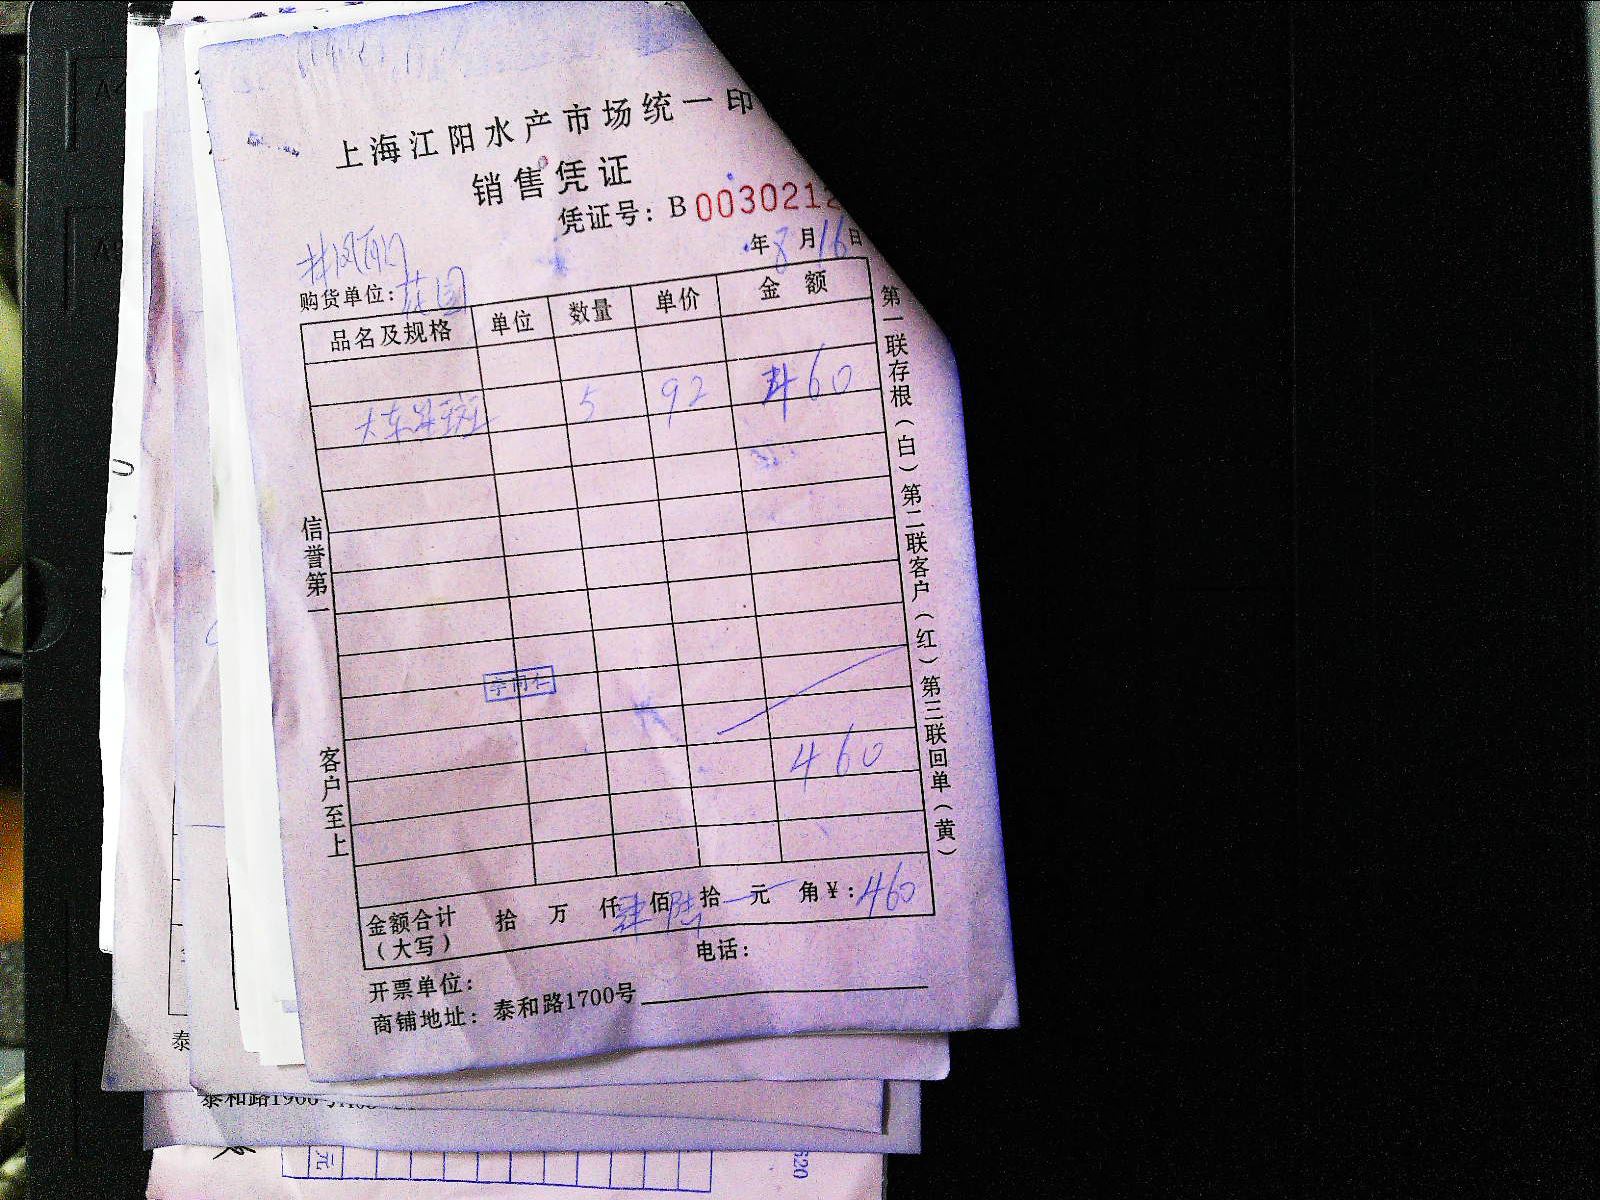 上海江阳水产市场统一印
销售凭证
凭证号：B 0030212
年8月16日
购货单位：花园
品名及规格 单位 数量 单价 金额
大东星斑 5 92 460
460
金额合计（大写） 拾 万 仟肆佰陆拾 元 角￥：460
电话：
开票单位：
商铺地址：泰和路1700号
信誉第一
客户至上
第一联存根（白）第二联客户（红）第三联回单（黄）
泰
元
620